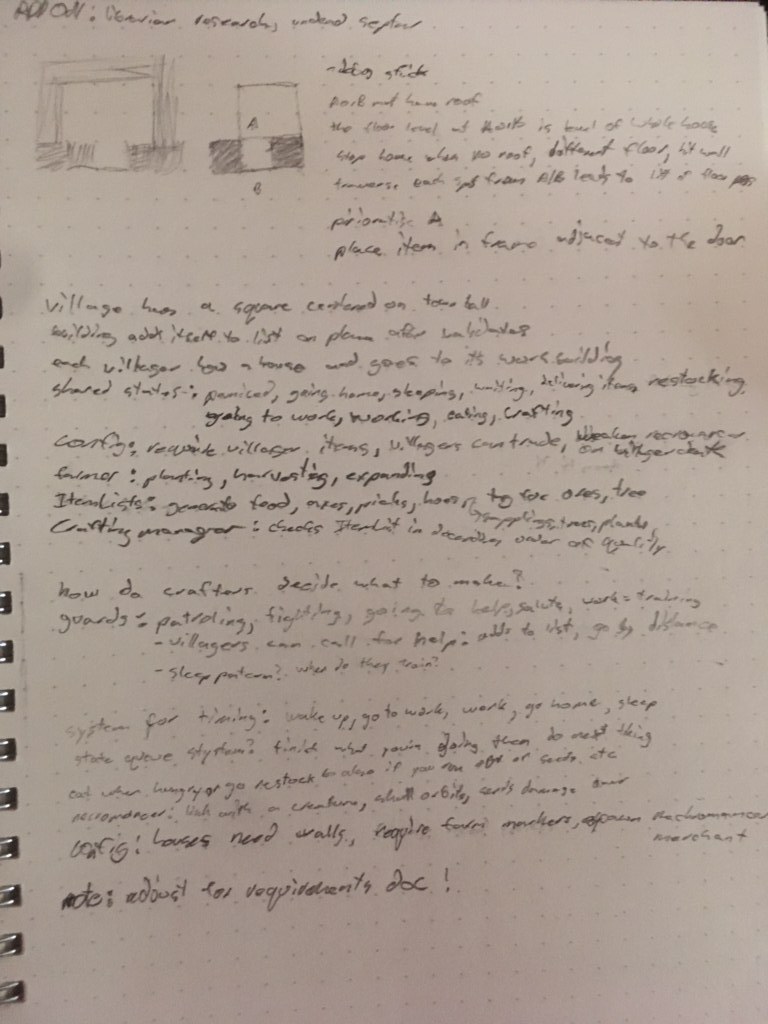 ADD ON: librarian research, undead
- debug stick
not have roof
the floor level at is level of whole house
stop home when no roof, different floor, hit wall
traverse each spot from A/B leads to list of floor
A
B
prioritize A
place item in frame adjacent to the door
village has a square centered on town hall
building adds itself to list on place after validates
each villager has a house and goes to its work building
shared states: panicked, going home, sleeping, waiting, delivering items, restocking
going to work, working, eating, crafting
config: require villager items, villagers can trade,
farmer: planting, harvesting, expanding
ItemLists: generate food, axes, picks, hoes, tag for ores, tree
saplings, trees, planks,
Crafting manager: checks ItemList in decending order of quality
how do crafters decide what to make?
guards: patroling, fighting, going to help, salute, work = training
- villagers can call for help: adds to list, go by distance
- sleep pattern? when do they train?
system for timing: wake up, go to work, work, go home, sleep
state queue system? finish what your doing then do next thing
eat when hungry or go restock to also if you run out of seeds etc
necromancer: link with a creature, skull orbits, sends damage
config: houses need walls, require farm markers, spawn necromancer
merchant
note: adjust for requirements doc!